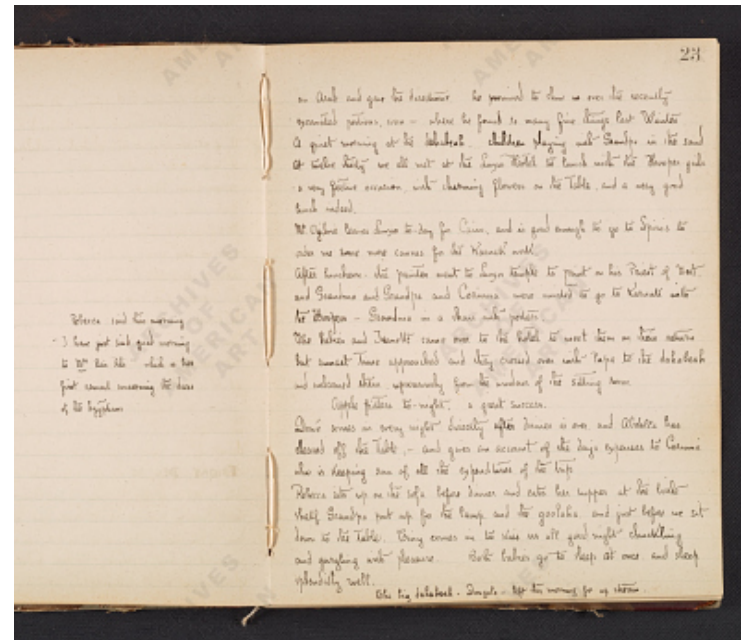 23
an Arab and gave the he promised to show us over the recently
excavated portions, soon - where he found so many fine things last Winter
A quiet morning at the dahabeah. children playing with Grandpa in the sand
At twelve thirty we all met at the Luxor Hotel to lunch with the Hooper girls
a very festive occasion, with charming flowers on the Table, and a very good
lunch indeed.
Mr leaves Luxor to-day for Cairo, and is good enough to go to to
order me some more canvas for the Karnak work
After luncheon - the painter went to Luxor temple to paint on his
and Grandma and Grandpa and Corinna were invited to go to Karnak with
the - Grandma in a chair with porters.
The Babies and came over to the hotel to meet them on there return
but sunset Time approached and they crossed over with Papa to the dahabeah
and welcomed them, uproariously from the windows of the sitting room.
Apple fritters to-night, a great success.
comes in every night directly after dinner is over, and Abdulla has
cleared off the Table, - and gives an account of the days expenses to Corinna
who is keeping sum of all the expenditures of the trip
Rebecca sits up on the sofa before dinner and eats her supper at the little
shelf Grandpa put up for the lamp and the goolahs. and just before we sit
down to the Table. comes in to kiss us all good night chuckling
and gurgling with pleasure. Both babies go to sleep at once, and sleep
splendidly well.
The big dahabeah - left this morning for up
Rebecca said this morning
"I have just said good morning
to which is her
first remark concerning the
of the Egyptians
ARCHIVES
OF
AMERICAN
ART